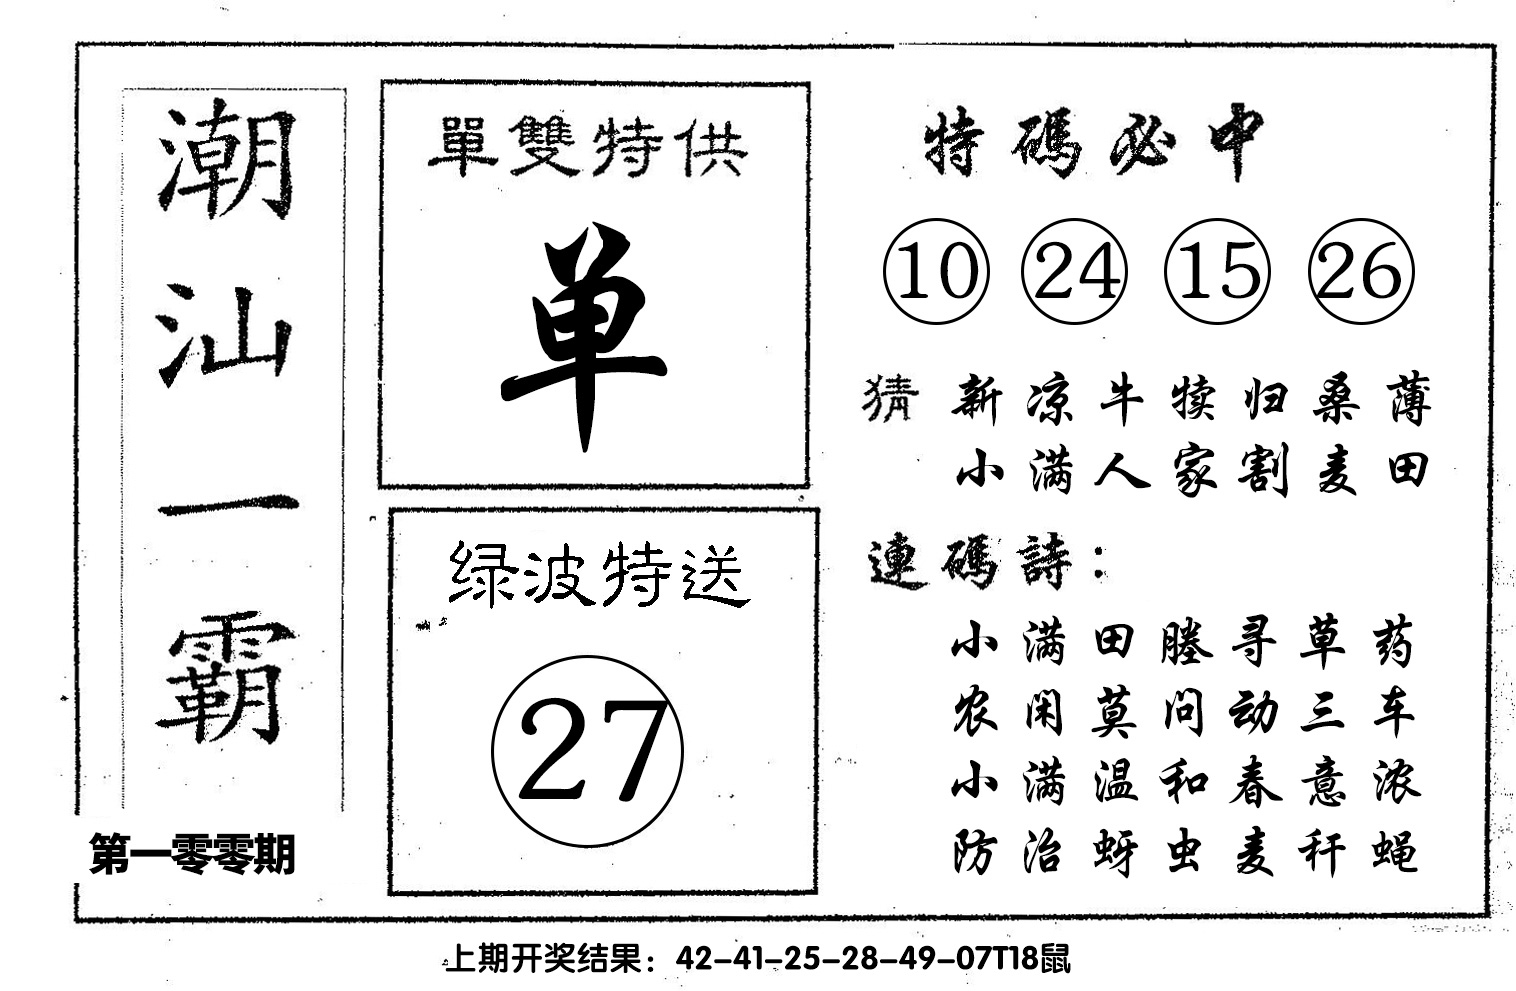 潮汕一霸
第一零零期
單雙特供
单
绿波特送
27
特碼必中
10 24 15 26
猜 新凉牛犊归桑薄
小满人家割麦田
連碼詩：
小满田塍寻草药
农闲莫问动三车
小满温和春意浓
防治蚜虫麦秆蝇
上期开奖结果：42-41-25-28-49-07T18鼠